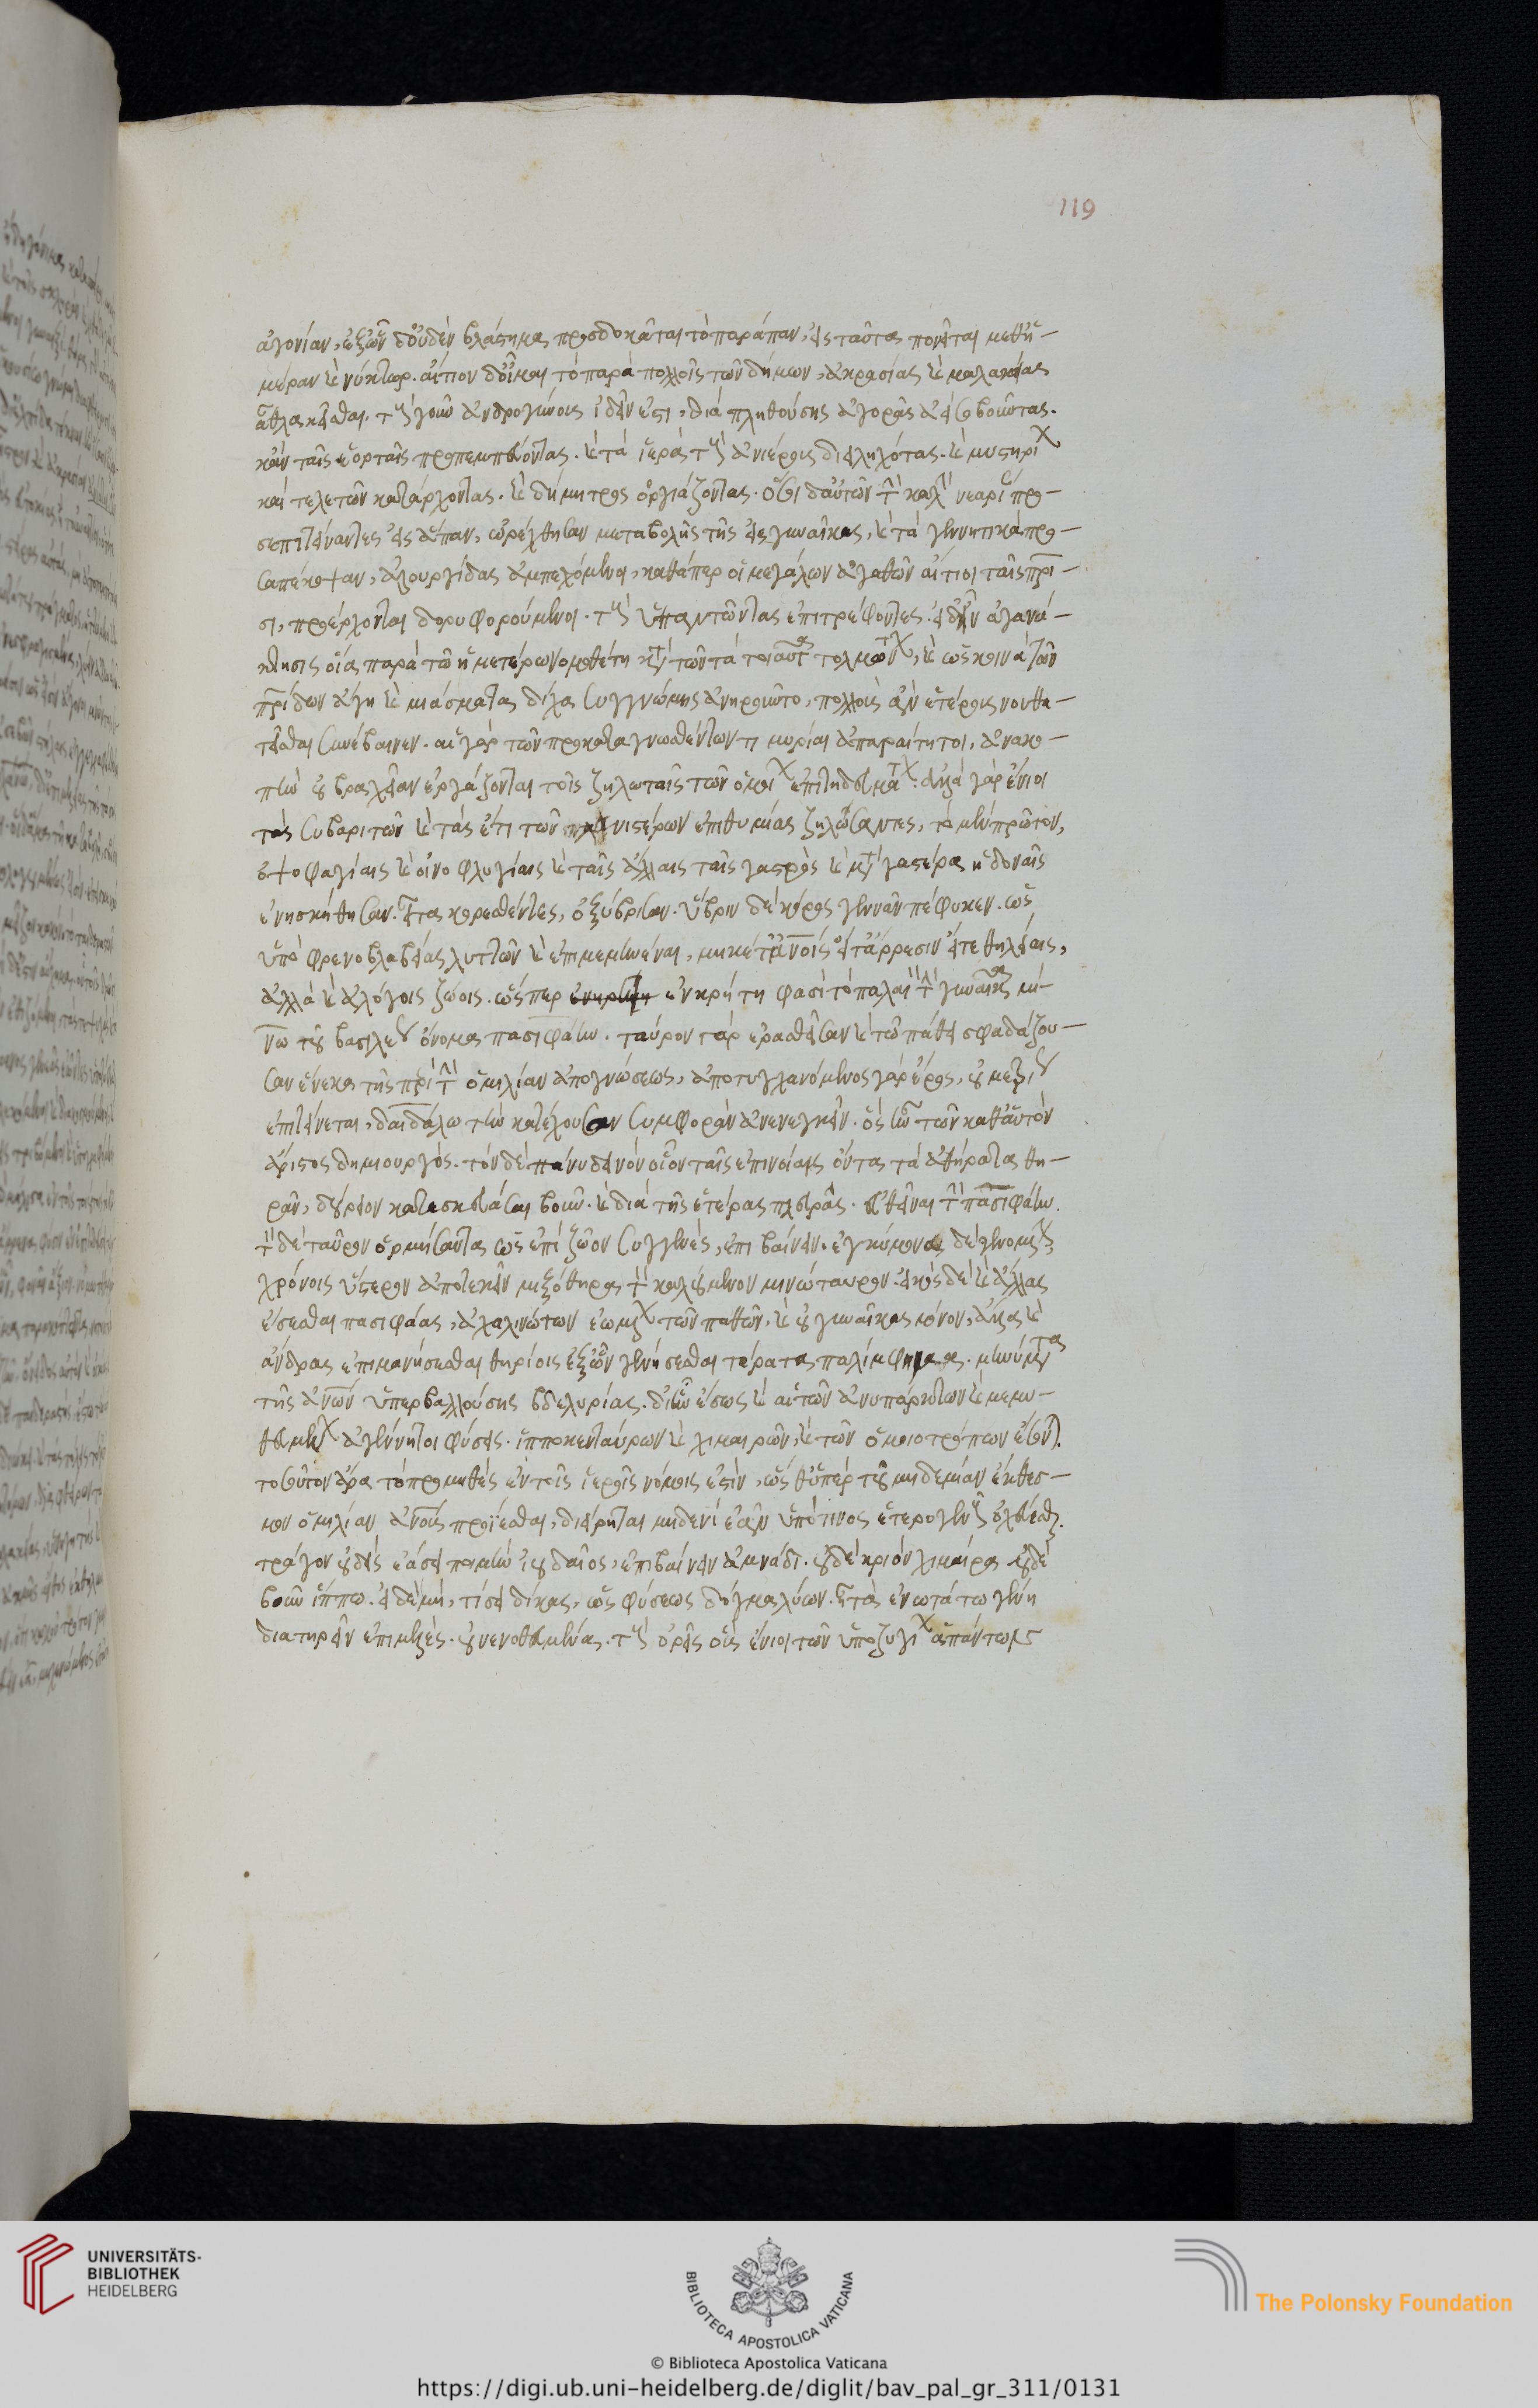 119
ἀγονίαν, ἐξ ὧν δ' οὐδὲν βλάστημα προσδοκᾶται τὸ παράπαν, εἰς ταῦτα πονεῖται μεθ' ἡ-
μέραν καὶ νύκτωρ. αἴτιον δ' οἶμαι τὸ παρὰ πολλοῖς τῶν δήμων, ἀκρασίας καὶ μαλακίας
ἆθλα κεῖσθαι. τοὺς γοῦν ἀνδρογύνους ἰδεῖν ἐστι, διὰ πληθούσης ἀγορᾶς ἀεὶ σοβοῦντας.
κἀν ταῖς ἑορταῖς προπομπεύοντας. καὶ τὰ ἱερὰ τοὺς ἀνιέρους διειληχότας. καὶ μυστηρίων
καὶ τελετῶν κατάρχοντας. καὶ δήμητρος ὀργιάζοντας. ὅσοι δ' αὐτῶν τὴν καλὴν νεανιείαν προ-
σεπιτείναντες εἰς ἅπαν, ὠρέχθησαν μεταβολῆς τῆς εἰς γυναῖκας, καὶ τὰ γεννητικὰ προ-
σαπέκοψαν, ἁλουργίδας ἀμπεχόμενοι, καθάπερ οἱ μεγάλων ἀγαθῶν αἴτιοι ταῖς πατρί-
σι, προέρχονται δορυφορούμενοι. τοὺς ὑπαντῶντας ἐπιστρέφοντες. εἰ δ' ἦν ἀγανά-
κτησις οἵα παρὰ τῶ ἡμετέρω νομοθέτη κατὰ τῶν τὰ τοιαῦτα τολμώντων, καὶ ὡς κοινὰ τῶν
πατρίδων ἄγη καὶ μιάσματα δίχα συγγνώμης ἀνηροῦντο, πολλοὺς ἂν ἑτέρους νουθε-
τεῖσθαι συνέβαινεν. αἱ γὰρ τῶν προκαταγνωσθέντων τιμωρίαι ἀπαραίτητοι, ἀνακο-
πὴν οὐ βραχεῖαν ἐργάζονται τοῖς ζηλωταῖς τῶν ὁμοίων ἐπιτηδευμάτων. ἀλλὰ γὰρ ἔνιοι
τὰς συβαριτῶν καὶ τὰς ἔτι τῶν λαγνιστέρων ἐπιθυμίας ζηλώσαντες, τὸ μὲν πρῶτον,
ὀψοφαγίαις καὶ οἰνοφλυγίαις καὶ ταῖς ἄλλαις ταῖς γαστρὸς καὶ μετὰ γαστέρα ἡδοναῖς
ἐνησκήθησαν. εἶτα κορεσθέντες, ἐξύβρισαν. ὕβριν δὲ κόρος γεννᾶν πέφυκεν. ὡς
ὑπὸ φρενοβλαβείας λυττῶν καὶ ἐπιμεμηνέναι, μηκέτ' ἀνθρώποις εἴτ' ἄρρεσιν εἴτε θηλείαις,
ἀλλὰ καὶ ἀλόγοις ζώοις. ὥσπερ ἐν κρήτη φασὶ τὸ παλαιὸν τὴν γυναῖκα μί-
νω τοῦ βασιλέως ὄνομα πασιφάην. ταύρου γὰρ ἐρασθεῖσαν καὶ τῶ πάθει σφαδάζου-
σαν ἕνεκα τῆς περὶ τὴν ὁμιλίαν ἀπογνώσεως, ἀποτυγχανόμενος γὰρ ἔρως, οὐ μετρίως
ἐπιτείνεται, δαιδάλω τὴν κατέχουσαν συμφορὰν ἀνενεγκεῖν. ὃς ἦν τῶν καθ' αὑτὸν
ἄριστος δημιουργός. τὸν δὲ πάνυ δεινὸν οἷον ταῖς ἐπινοίαις ὄντα τὰ ἀθήρατα θη-
ρᾶν, δούρειον κατασκευάσαι βοῦν. καὶ διὰ τῆς ἑτέρας πλευρᾶς. ἐνθεῖναι τὴν πασιφάην.
τὸν δὲ ταῦρον ὁρμήσαντα ὡς ἐπὶ ζῶον συγγενὲς, ἐπιβαίνειν. ἐγκύμονα δὲ γενομένην
χρόνοις ὕστερον ἀποτεκεῖν μιξόθηρα τὸν καλούμενον μινώταυρον. εἰκὸς δὲ καὶ ἄλλας
ἔσεσθαι πασιφάας, ἀχαλινώτων ἐωμένων τῶν παθῶν, καὶ οὐ γυναῖκας μόνον, ἀλλὰ καὶ
ἄνδρας ἐπιμανήσεσθαι θηρίοις ἐξ ὧν γενήσεσθαι τέρατα παλίμφημα. μηνύματα
τῆς ἀνθρώπων ὑπερβαλλούσης βδελυρίας. δι' ἣν ἴσως καὶ αἱ τῶν ἀνυπάρκτων καὶ μεμυ-
θευμένων ἀγέννητοι φύσεις. ἱπποκενταύρων καὶ χιμαιρῶν, καὶ τῶν ὁμοιοτρόπων ἔσονται.
τοσοῦτον ἄρα τὸ προμηθὲς ἐν τοῖς ἱεροῖς νόμοις ἐστὶν, ὡς θ' ὑπὲρ τοῦ μηδεμίαν ἔκθεσ-
μον ὁμιλίαν ἀνθρώπους προΐεσθαι, διείρηται μηδενὶ ἐᾶν ὑπό τινος ἑτερογενοῦς ὀχεύεσθαι.
τράγον οὐδεὶς ἐάσει ποιμὴν ἰουδαῖος, ἐπιβαίνειν ἀμνάδι. οὐδὲ κριὸν χιμαίρα οὐδὲ
βοῦν ἵππω. εἰ δὲ μὴ, τίσει δίκας, ὡς φύσεως δόγμα λύων. ἧ τὰ ἐνωτάτω γένη
διατηρεῖν ἐπιμελὲς. οὐ νενοθευμένας. τοὺς ὀρεῖς οὓς ἔνιοι τῶν ὑποζυγίων ἁπάντων
UNIVERSITÄTS-
BIBLIOTHEK
HEIDELBERG
BIBLIOTECA APOSTOLICA VATICANA
The Polonsky Foundation
© Biblioteca Apostolica Vaticana
https://digi.ub.uni-heidelberg.de/diglit/bav_pal_gr_311/0131